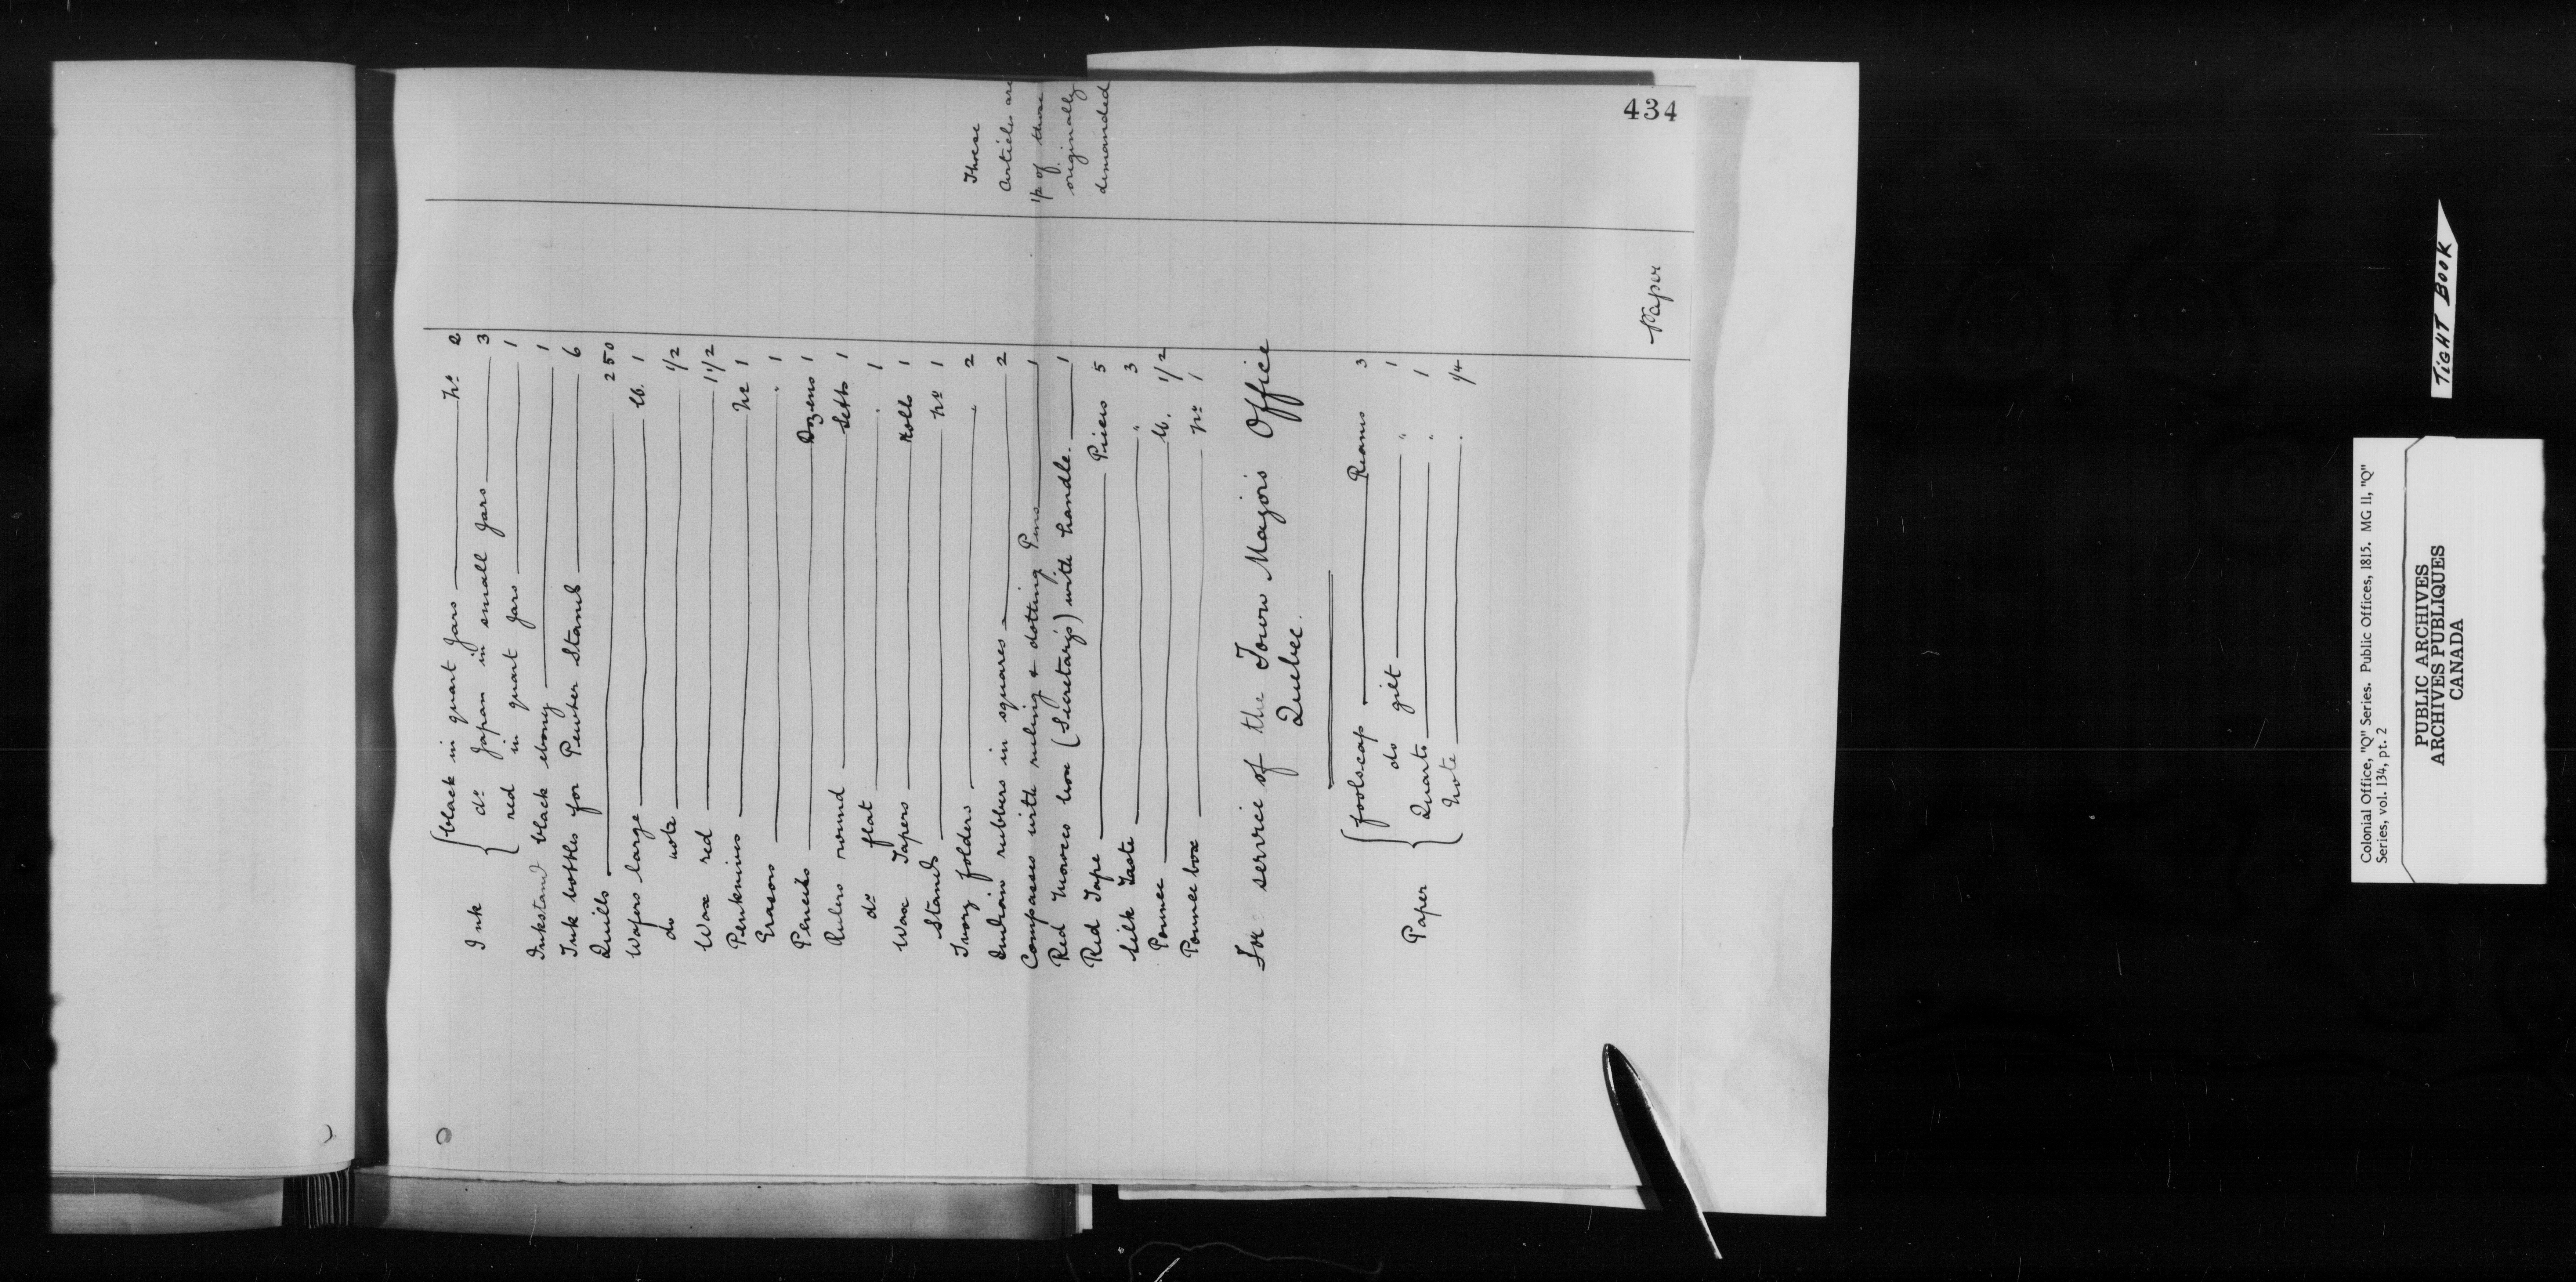 434
{black in quart jars —— No 2
Ink { do Japan in small jars —— 3
{ red in quart jars —— 1
Inkstand black ebony —— 1
Ink bottles for Pewter Stands —— 6
Quills —— 250
Wafers large —— lb. 1
do note —— 1/2
Wax red —— 1 1/2
Penknives —— No 1
Erasors —— " 1
Pencils —— Dozens 1
Rulers round —— Setts 1
do flat —— " 1
Wax Tapers —— Rolls 1
Stands —— No 1
Ivory folders —— " 2
Indian rubbers in squares —— 2
Compasses with ruling & dotting Pens —— 1
Red Morocco box (Secretarys) with handle. —— 1
Red Tape —— Pieces 5
Silk Taste —— " 3
Pounce —— lb. 1/2
Pounce box —— No 1
These
Articles are
1/2 of those
originally
demanded
For service of the Town Major's Office
Quebec.
{foolscap —— Reams 3
do gilt —— " 1
Paper { Quarto —— " 1
Note —— " 1/4
Paper
TIGHT BOOK
Colonial Office, "Q" Series. Public Offices, 1815. MG 11, "Q"
Series, vol. 134, pt. 2
PUBLIC ARCHIVES
ARCHIVES PUBLIQUES
CANADA